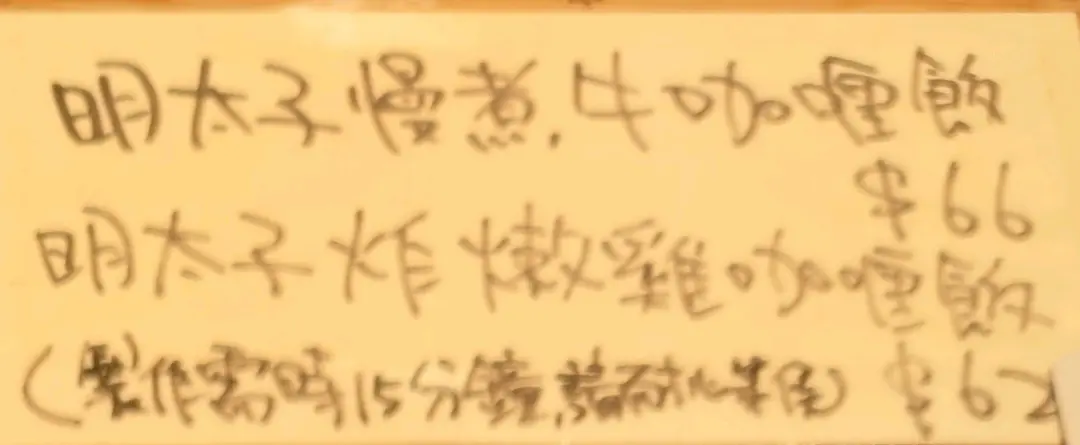 明太子慢煮牛咖喱飯
$66
明太子炸嫩雞咖喱飯
(製作需時15分鐘,請耐心等候) $62